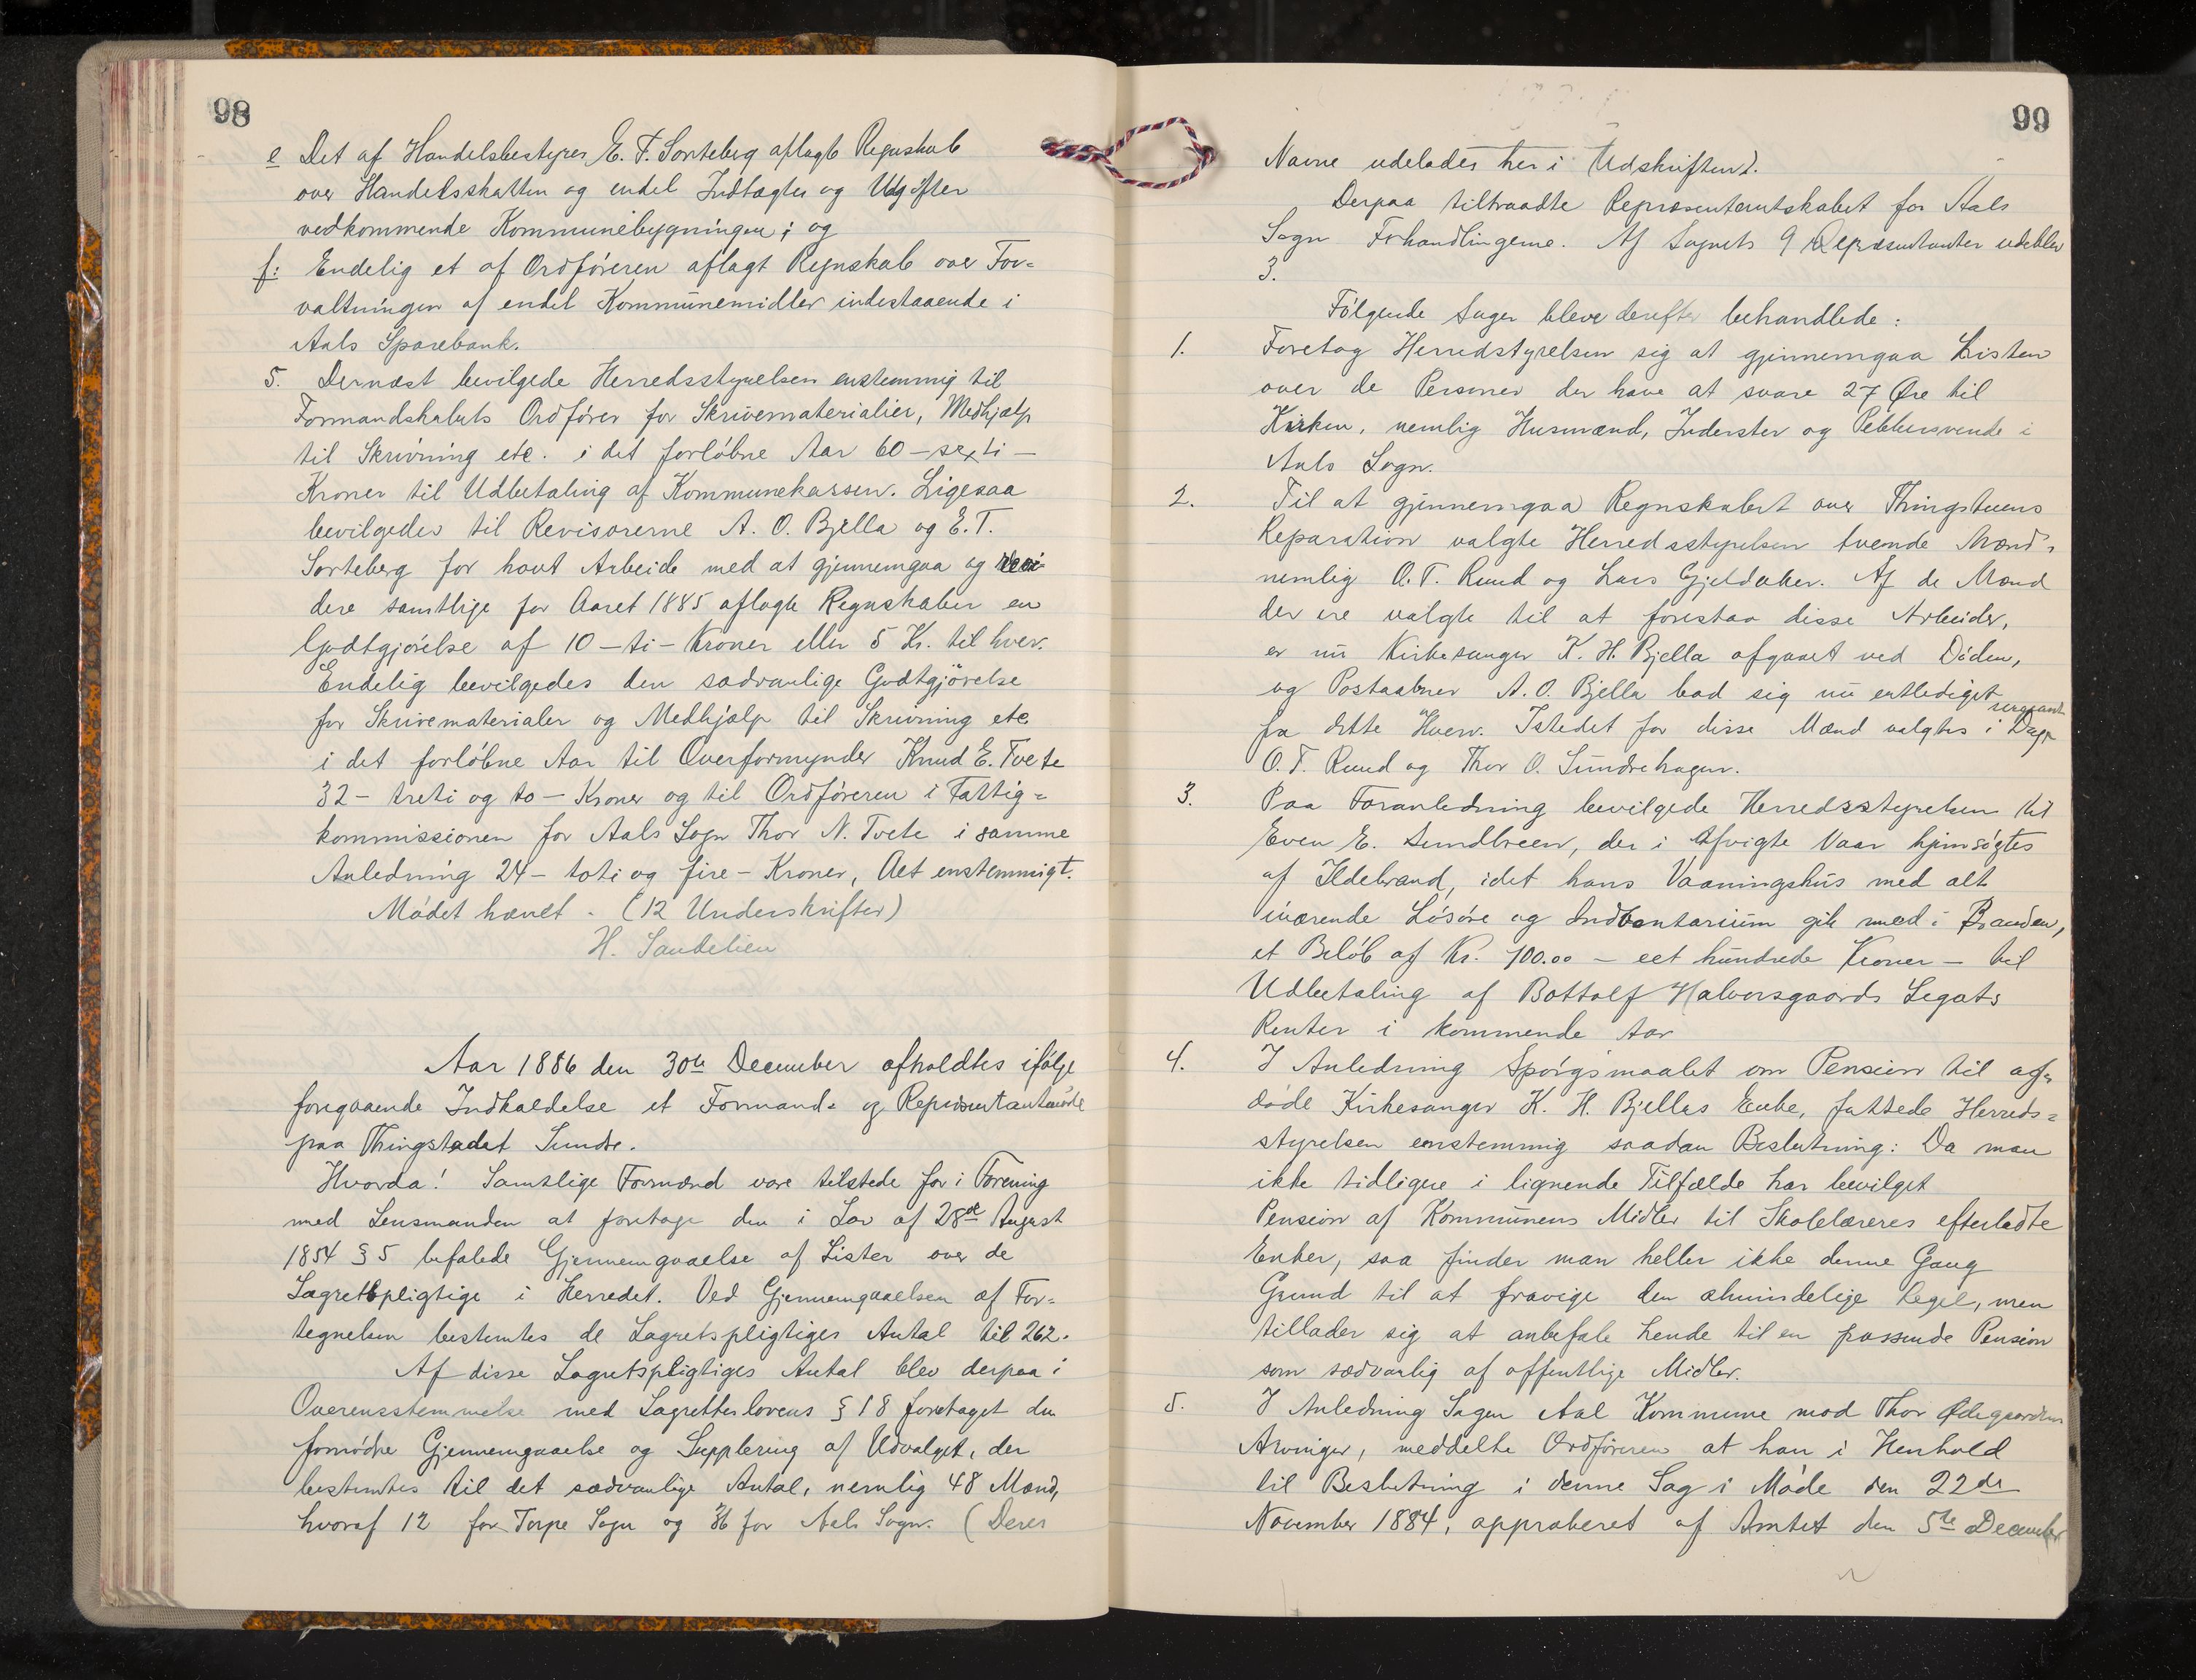 98
e Det af Handelsbestyrer E. T. Sorteberg aflagte Regnskab
over Handelsskatten og endel Indtægter og Udgifter
vedkommende Kommunebygningen; og
f: Endelig et af Ordføreren aflagt Regnskab over For=
valtningen af endel Kommunemidler indestaaende i
Aals Sparebank.
5. Dernæst bevilgede Herredsstyrelsen enstemmig til
Formandskabets Ordfører for Skrivematerialier, Medhjælp
til Skrivning etc. i det forløbne Aar 60 - sexti -
Kroner til Udbetaling af Kommunekassen. Ligesaa
bevilgedes til Revisorerne A. O. Bjella og E. T.
Sorteberg for havt Arbeide med at gjennemgaa og revi-
dere samtlige for Aaret 1885 aflagte Regnskaber en
Godtgjørelse af 10 - ti - Kroner eller 5 Kr. til hver.
Endelig bevilgedes den sædvanlige Godtgjörelse
for Skrivematerialer og Medhjælp til Skrivning etc.
i det forløbne Aar til Overformynder Knud E. Tvete
32 - treti og to - Kroner og til Ordføreren i Fattig=
kommissionen for Aals Sogn Thor N. Tvete i samme
Anledning 24 - toti og fire - Kroner, Alt enstemmigt.
Mødet hævet. (12 Underskrifter)
H. Sandelien
Aar 1886 den 30te December afholdtes ifølge
foregaaende Indkaldelse et Formands og Representantmøde
paa Thingstedet Sundre.
Hvorda! Samtlige Formænd vare tilstede for i Forening
med Lensmanden at foretage den i Lov af 28de August
1854 § 5 befalede Gjennemgaaelse af Lister over de
Lagretspligtige i Herredet. Ved Gjennemgaaelsen af For=
tegnelsen bestemtes de Lagretspligtiges Antal til 262.
Af disse Lagretspligtiges Antal blev derpaa i
Overensstemmelse med Lagretteslovens § 18 foretaget den
fornødne Gjennemgaaelse og Supplering af Udvalget, der
bestemtes til det sædvanlige Antal, nemlig 48 Mand,
hvoraf 12 for Torpe Sogn og 36 for Aals Sogn. (Deres
99
Navne udelades her i Udskriften).
Derpaa tiltraadte Repræsentantskabet for Aals
Sogn Forhandlingerne. Af Sognets 9 Repræsentanter udeblev
3.
Følgende Sager bleve derefter behandlede:
1. Foretog Herredstyrelsen sig at gjennemgaa Listen
over de Personer der have at svare 27 Øre til
Kirken, nemlig Husmænd, Inderster og Pebbersvende i
Aals Sogn.
2. Til at gjennemgaa Regnskabet over Thingstuens
Reparation valgte Herredsstyrelsen tvende Mænd,
nemlig O. T. Ruud og Lars Gjeldaker. Af de Mænd
der ere valgte til at forestaa disse Arbeider,
er nu Kirkesanger K. H. Bjella afgaaet ved Døden,
og Postaabner A. O. Bjella bad sig nu entlediget
fra dette Hverv. Istedet for disse Mænd valgtes i Dag
O. T. Ruud og Thor O. Sundrehagen.
3. Paa Foranledning bevilgede Herredsstyrelsen til
Even E. Sundbreen, der i afvigte Vaar hjemsøgtes
af Ildebrand, idet hans Vaaningshus med alt
iværende Løsøre og Indbentarium gik med i Branden,
et Beløb af Kr. 100.00 - eet hundrede Kroner - til
Udbetaling af Bottolf Halvorsgaards Legats
Renter i kommende Aar
4. I Anledning Spørgsmaalet om Pension til af=
døde Kirkesanger K. H. Bjellas Enke, fattede Herreds=
styrelsen enstemmig saadan Beslutning: Da man
ikke tidligere i lignende Tilfælde har bevilget
Pension af Kommunens Midler til Skolelæreres efterladte
Enker, saa finder man heller ikke denne Gang
Grund til at fravige den almindelige Regel, men
tillader sig at anbefale hende til en passende Pension
som sædvanlig af offentlige Midler.
5. I Anledning Sagen Aal Kommune mod Thor Ødegaardens
Arvinger, meddelte Ordføreren at han i Henhold
til Beslutning i denne Sag i Møde den 22de
November 1884, approberet af Amtet den 5te December